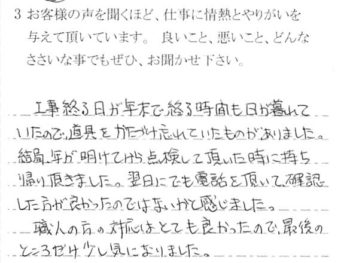 3 お客様の声を聞くほど、仕事に情熱とやりがいを
与えて頂いています。 良いこと、悪いこと、どんな
ささいな事でもぜひ、お聞かせ下さい。
工事終る日が年末で終る時間も日が暮れて
いたので、道具をかたづけ忘れていたものがありました。
結局、年が明けてから点検して頂いた時に持ち
帰り頂きました。翌日にでも電話を頂いて確認
した方が良かったのではないかと感じました。
職人の方の対応はとても良かったので、最後の
ところだけ少し気になりました。